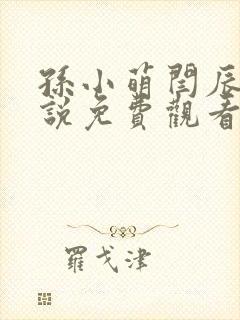 孫小萌閆辰
說免費觀看
羅戈津